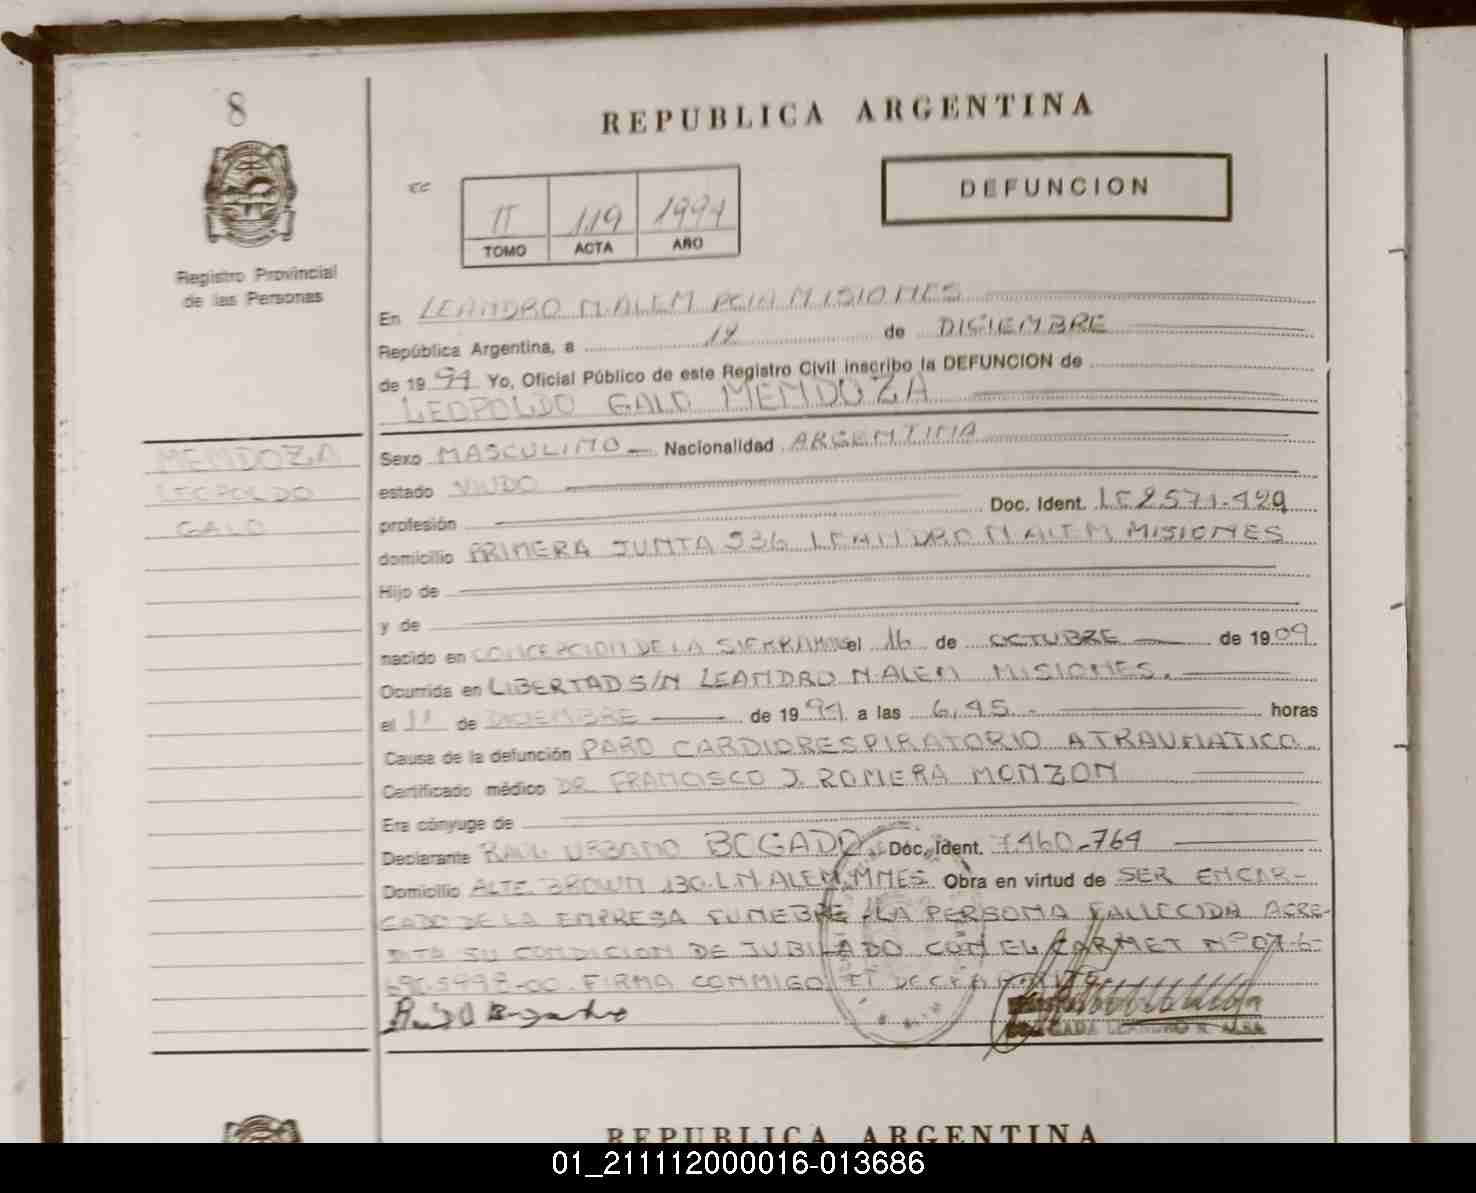 8
REPUBLICA ARGENTINA
DEFUNCION
II 119 1991
TOMO ACTA AÑO
Registro Provincial
de las Personas
En LEANDRO N. ALEM PCIA MISIONES
República Argentina, a 12 de DICIEMBRE
de 19 91 Yo, Oficial Público de este Registro Civil inscribo la DEFUNCION de
LEOPOLDO GALO MENDOZA
MENDOZA
LEOPOLDO
GALO
Sexo MASCULINO Nacionalidad ARGENTINA
estado VIUDO
profesión Doc. Ident. LE 2571.429
domicilio PRIMERA JUNTA 536 LEANDRO N ALEM MISIONES
Hijo de
y de
nacido en CONCEPCION DE LA SIERRA MNES el 16 de OCTUBRE de 19 09
Ocurrida en LIBERTAD S/N LEANDRO N. ALEM MISIONES.
el 11 de DICIEMBRE de 19 91 a las 6,45 horas
Causa de la defunción PARO CARDIORESPIRATORIO ATRAUMATICO
Certificado médico DR. FRANCISCO J. ROMERA MONZON
Era cónyuge de
Declarante RAUL URBANO BOGADO Doc. Ident. 7.460.764
Domicilio ALTE. BROWN 130. L.N ALEM, MNES. Obra en virtud de SER ENCAR-
GADO DE LA EMPRESA FUNEBRE LA PERSONA FALLECIDA ACRE-
DITA SU CONDICION DE JUBILADO CON EL CARNET Nº 07-6-
FIRMA CONMIGO EL DECLARANTE
REPUBLICA ARGENTINA
01_211112000016-013686